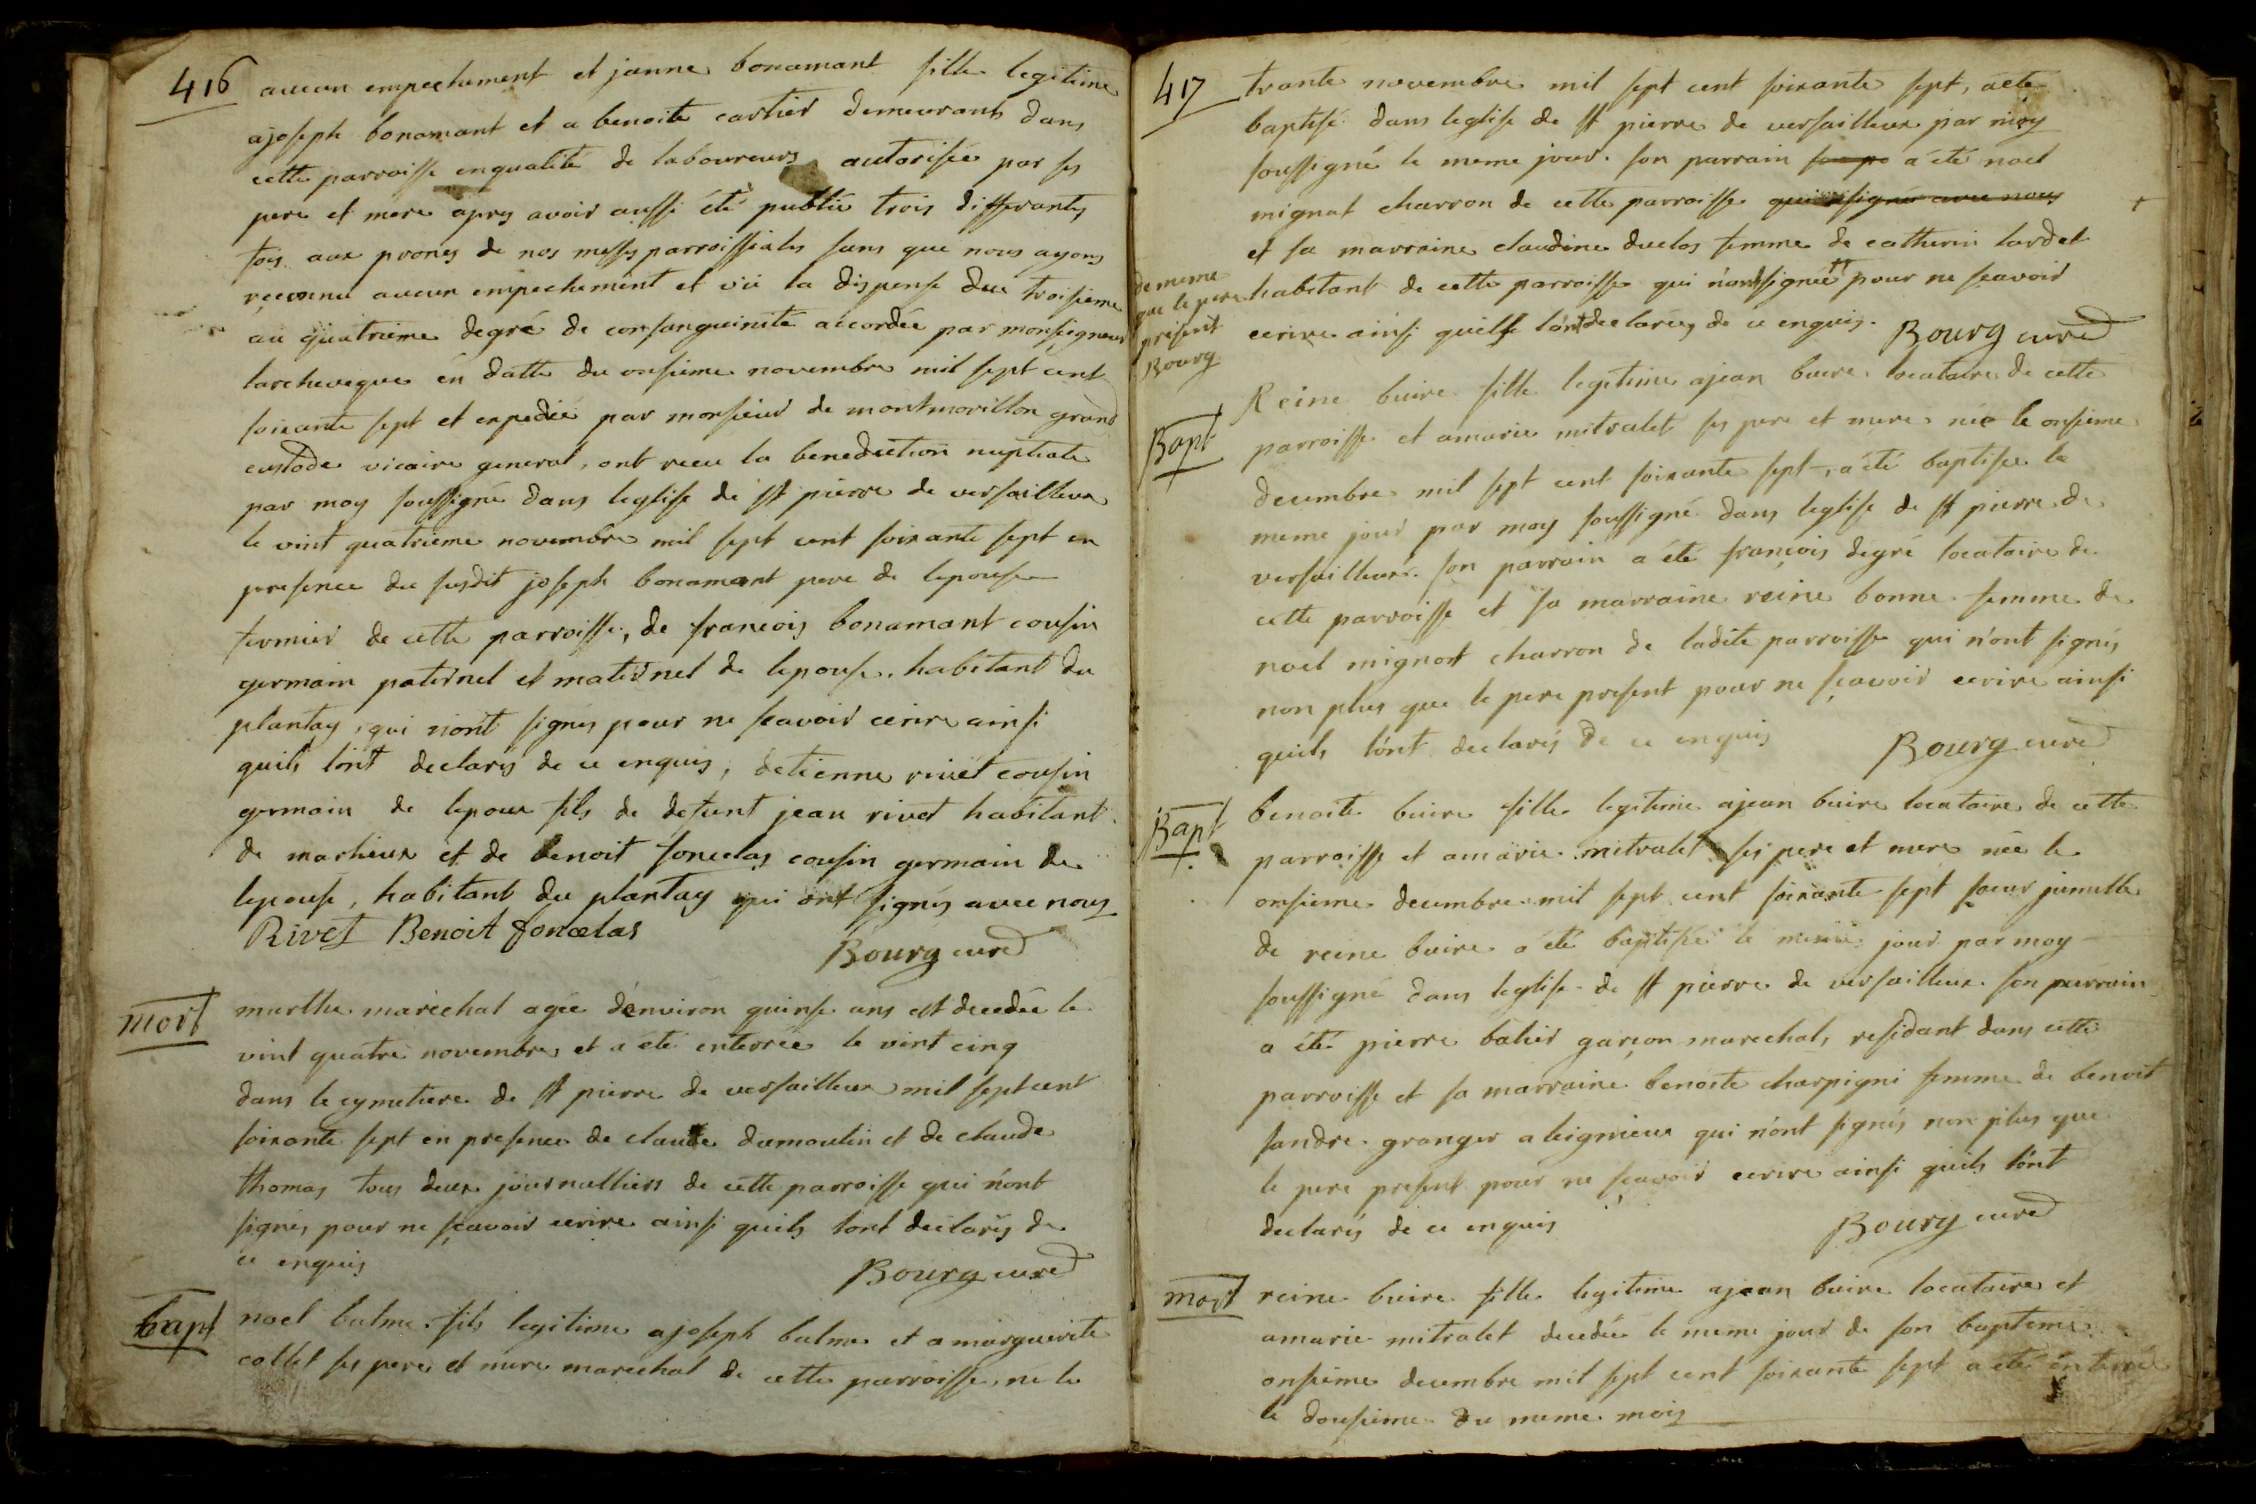 416
aucun empechement et janne bonamant fille legitime
a joseph bonamant et a benoite cartier demeurants dans
cette parroisse en qualité de laboureurs autorisée par ses
pere et mere apres avoir aussi été publié trois differantes
fois aux prones de nos messes parroissiales sans que nous ayons
reconnu aucun empechement et vu la dispense du troisieme
au quatrieme degré de consanguinité accordée par monseigneur
larcheveque en datte du onsieme novembre mil sept cent
soixante sept et expediée par monsieur de montmorillon grand
custode vicaire general, ont receu la benediction nuptiale
par moy soussigné dans leglise de st pierre de versailleux
le vint quatrieme novembre mil sept cent soixante sept en
presence du susdit joseph bonamant pere de lepouse
fermier de cette parroisse, de francois bonamant cousin
germain paternel et maternel de lepouse. habitant du
plantay, qui n'ont signés pour ne scavoir ecrire ainsi
quils l'ont declarés de ce enquis, detienne rivet cousin
germain de lepoux fils de defunt jean rivet habitant
de marlieux et de benoit foncelas cousin germain de
lepouse, habitant du plantay qui ont signés avec nous
Rivet Benoit foncelas
Bourg curé
mort
marthe maréchal agée d'environ quinse ans est decedée le
vint quatre novembre et a été enterrée le vint cinq
dans le cymetiere de st pierre de versailleux mil sept cent
soixante sept en presence de claude dumoulin et de claude
thomas tous deux journalliers de cette parroisse qui n'ont
signés pour ne scavoir ecrire ainsi quils lont declarés de
ce enquis
Bourg curé
bapt
noel balme fils legitime a joseph balme et a marguerite
collet ses pere et mere marechal de cette parroisse, ne le
417
trante novembre mil sept cent soixante sept, a eté
baptisé dans leglise de st pierre de versailleux par moy
soussigné le meme jour. son parrain a été noel
mignat charron de cette parroisse qui a signé avec nous
et sa marraine claudine duclos femme de catherin lardet
habitant de cette parroisse qui n'ont signé pour ne scavoir
ecrire ainsi quils l'ont declarés de ce enquis.
Bourg curé
de meme
que le pere
présent
Bourg
Bapt
Reine buire fille legitime a jean buire locataire de cette
parroisse et a marie mitralet ses pere et mere née le onsieme
decembre mil sept cent soixante sept, a été baptisée le
meme jour par moy soussigné dans leglise de st pierre de
versailleux. son parrain a été françois degré locataire de
cette parroisse et sa marraine reine bonne femme de
noel mignat charron de ladite parroisse qui n'ont signés
non plus que le pere present pour ne sçavoir ecrire ainsi
quils l'ont declarés de ce enquis
Bourg curé
Bapt
benoite buire fille legitime a jean buire locataire de cette
parroisse et a marie mitralet ses pere et mere née le
onsieme decembre mil sept cent soixante sept soeur jumelle
de reine buire a été baptisée le meme jour par moy
soussigné dans leglise de st pierre de versailleux. son parrain
a été pierre balier garçon marechal, residant dans cette
parroisse et sa marraine benoite charpigni femme de benoit
fandre granger a leignieux qui n'ont signés non plus que
le pere present pour ne sçavoir ecrire ainsi quils l'ont
declarés de ce enquis
Bourg curé
mort
reine buire fille legitime a jean buire locataire et
a marie mitralet decedée le meme jour de son bapteme
onsieme decembre mil sept cent soixante sept a été enterrée
le dousieme du meme mois